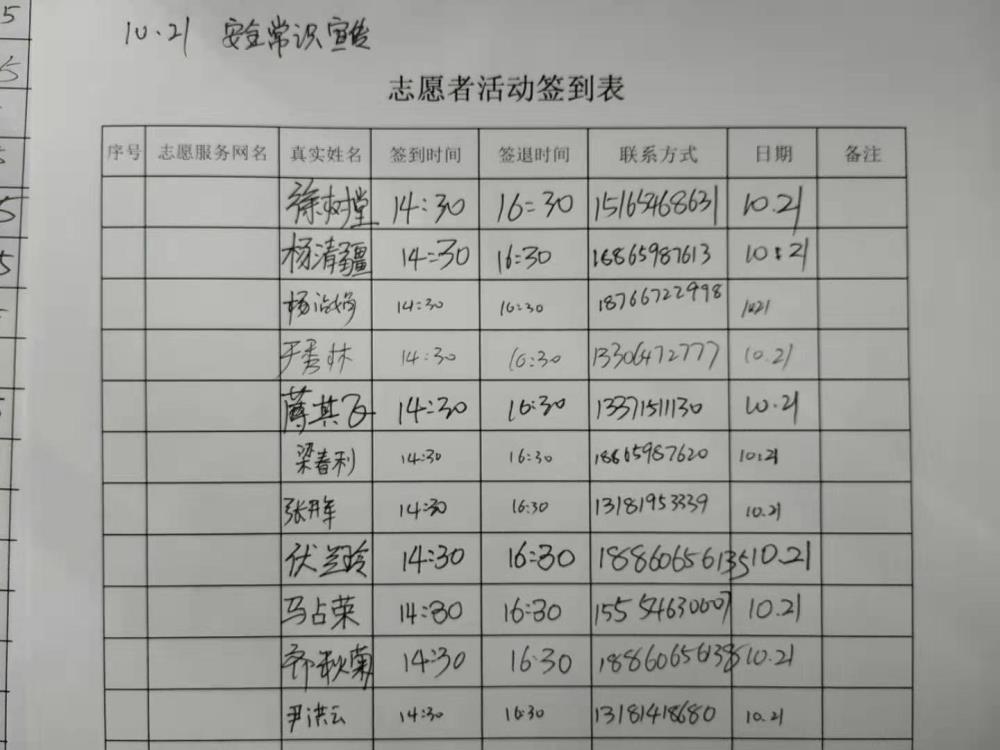 10.21 安全常识宣传
志愿者活动签到表
序号 志愿服务网名 真实姓名 签到时间 签退时间 联系方式 日期 备注
徐树堂 14:30 16:30 15165468631 10.21
杨清疆 14:30 16:30 18865987613 10:21
杨 14:30 16:30 18766722998 10.21
于秀林 14:30 16:30 13306472777 10.21
蒋其飞 14:30 16:30 13371511130 10.21
梁春利 14:30 16:30 18865987620 10:21
张开军 14:30 16:30 13181953339 10.21
伏兰玲 14:30 16:30 18860656135 10.21
马占荣 14:30 16:30 15554630607 10.21
齐秋菊 14:30 16:30 18860656138 10.21
尹洪云 14:30 16:30 13181418680 10.21
5
5
5
5